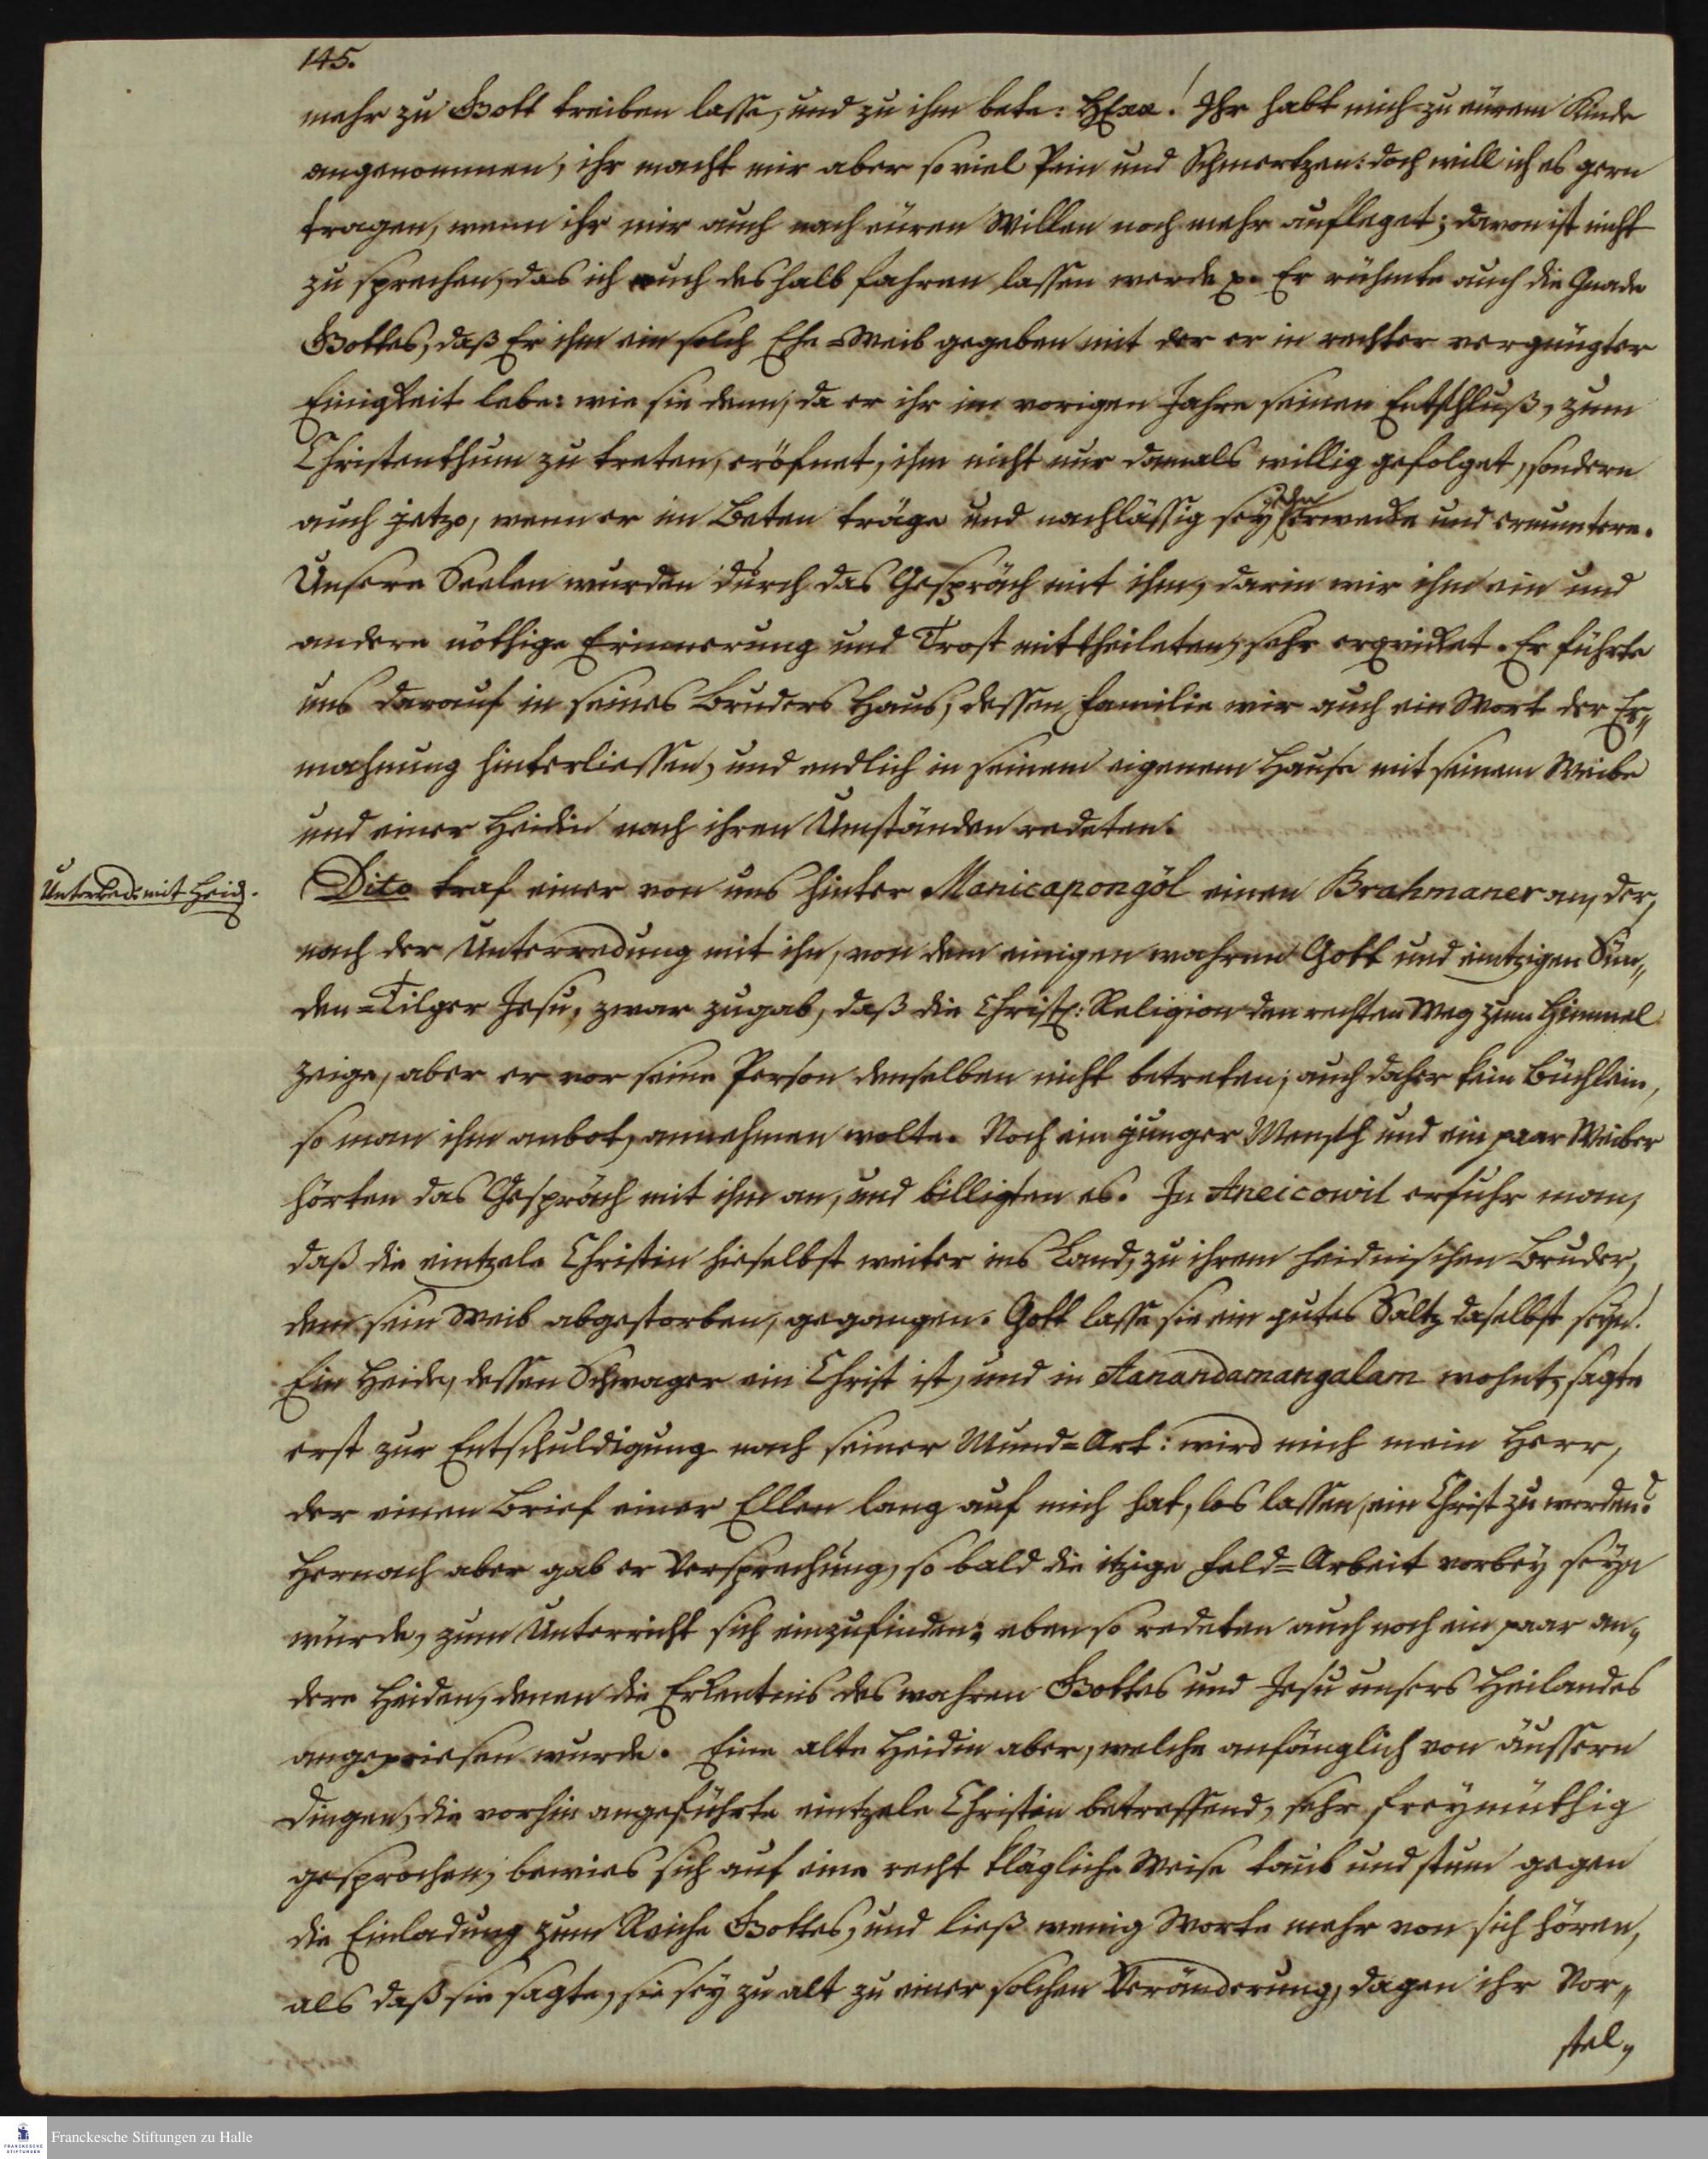 145.
mehr zu Gott treiben lasse, und zu ihm bete: HErr! Ihr habt mich zu eürem Kinde
angenommen, ihr macht mir aber so viel Pein und Schmertzen: doch will ich es gern
tragen, wenn ihr mir auch nach eüren Willen noch mehr aufleget; davon ist nicht
zu sprechen, das ich euch deshalb fahren lassen werde p. Er rühmte auch die Gnade
Gottes, daß Er ihm ein solch Ehe-Weib gegeben mit der er in rechter vergnügter
Einigkeit lebe: wie sie denn, da er ihr im vorigen Jahre seinen Entschluß, zum
Christenthum zu treten, eröfnet, ihm nicht nur damals willig gefolget, sondern
auch jetzo, wenn er im Beten träge und nachlässig sey erwecke und ermuntere.
Unsere Seelen wurden durch das Gespräch mit ihm, darin wir ihm ein und
andere nöthige Erinnerung und Trost mittheileten, sehr erquicket. Er führte
uns darauf in seines Bruders Haus, dessen Familie wir auch ein Wort der Er„
mahnung hinterliessen, und endlich in seinem eigenem Hause mit seinem Weibe
und einer Heidin nach ihren Umständen redeten.
Unterred: mit Heid.
Dito traf einer von uns hinter Manicapongöl einen Brahmaner an, der,
nach der Unterredung mit ihn, von dem einigen wahren Gott und eintzigen Sün„
den-Tilger Jesu, zwar zugab, daß die Christl: Religion den rechten Weg zum Himmel
zeige, aber er vor seine Person denselben nicht betreten; auch daher kein Büchlein,
so man ihm anbot, annehmen wolte. Noch ein junger Mensch und ein paar Weiber
hörten das Gespräch mit ihm an, und billigten es. In Aneicowil erfuhr man,
daß die eintzele Christin hieselbst weiter ins Land, zu ihrem heidnischen Bruder,
dem sein Weib abgestorben, gegangen. Gott lasse sie ein gutes Saltz daselbst seyn!
Ein Heide, dessen Schwager ein Christ ist, und in Aanandamangalam wohnt, sagte
erst zur Entschuldigung nach seiner Mund-Art: wird mich mein Herr,
der einen Brief einer Ellen lang auf mich hat, los lassen, ein Christ zu werden?
Hernach aber gab er Versprechung, so bald die itzige Feld-Arbeit vorbey seyn
würde, zum Unterricht sich einzufinden; eben so redeten auch noch ein paar an„
dere Heiden, denen die Erkentnis des wahren Gottes und Jesu unsers Heilandes
angepriesen wurde. Eine alte Heidin aber, welche anfänglich von äussern
Dingen, die vorhin angeführte eintzele Christin betreffend, sehr freymüthig
gesprochen, bewies sich auf eine recht klägliche Weise taub und stum gegen
die Einladung zum Reiche Gottes, und ließ wenig Worte mehr von sich hören,
als daß sie sagte, sie sey zu alt zu einer solchen Veränderung, dagen ihr Vor„
stel„
Franckesche Stiftungen zu Halle